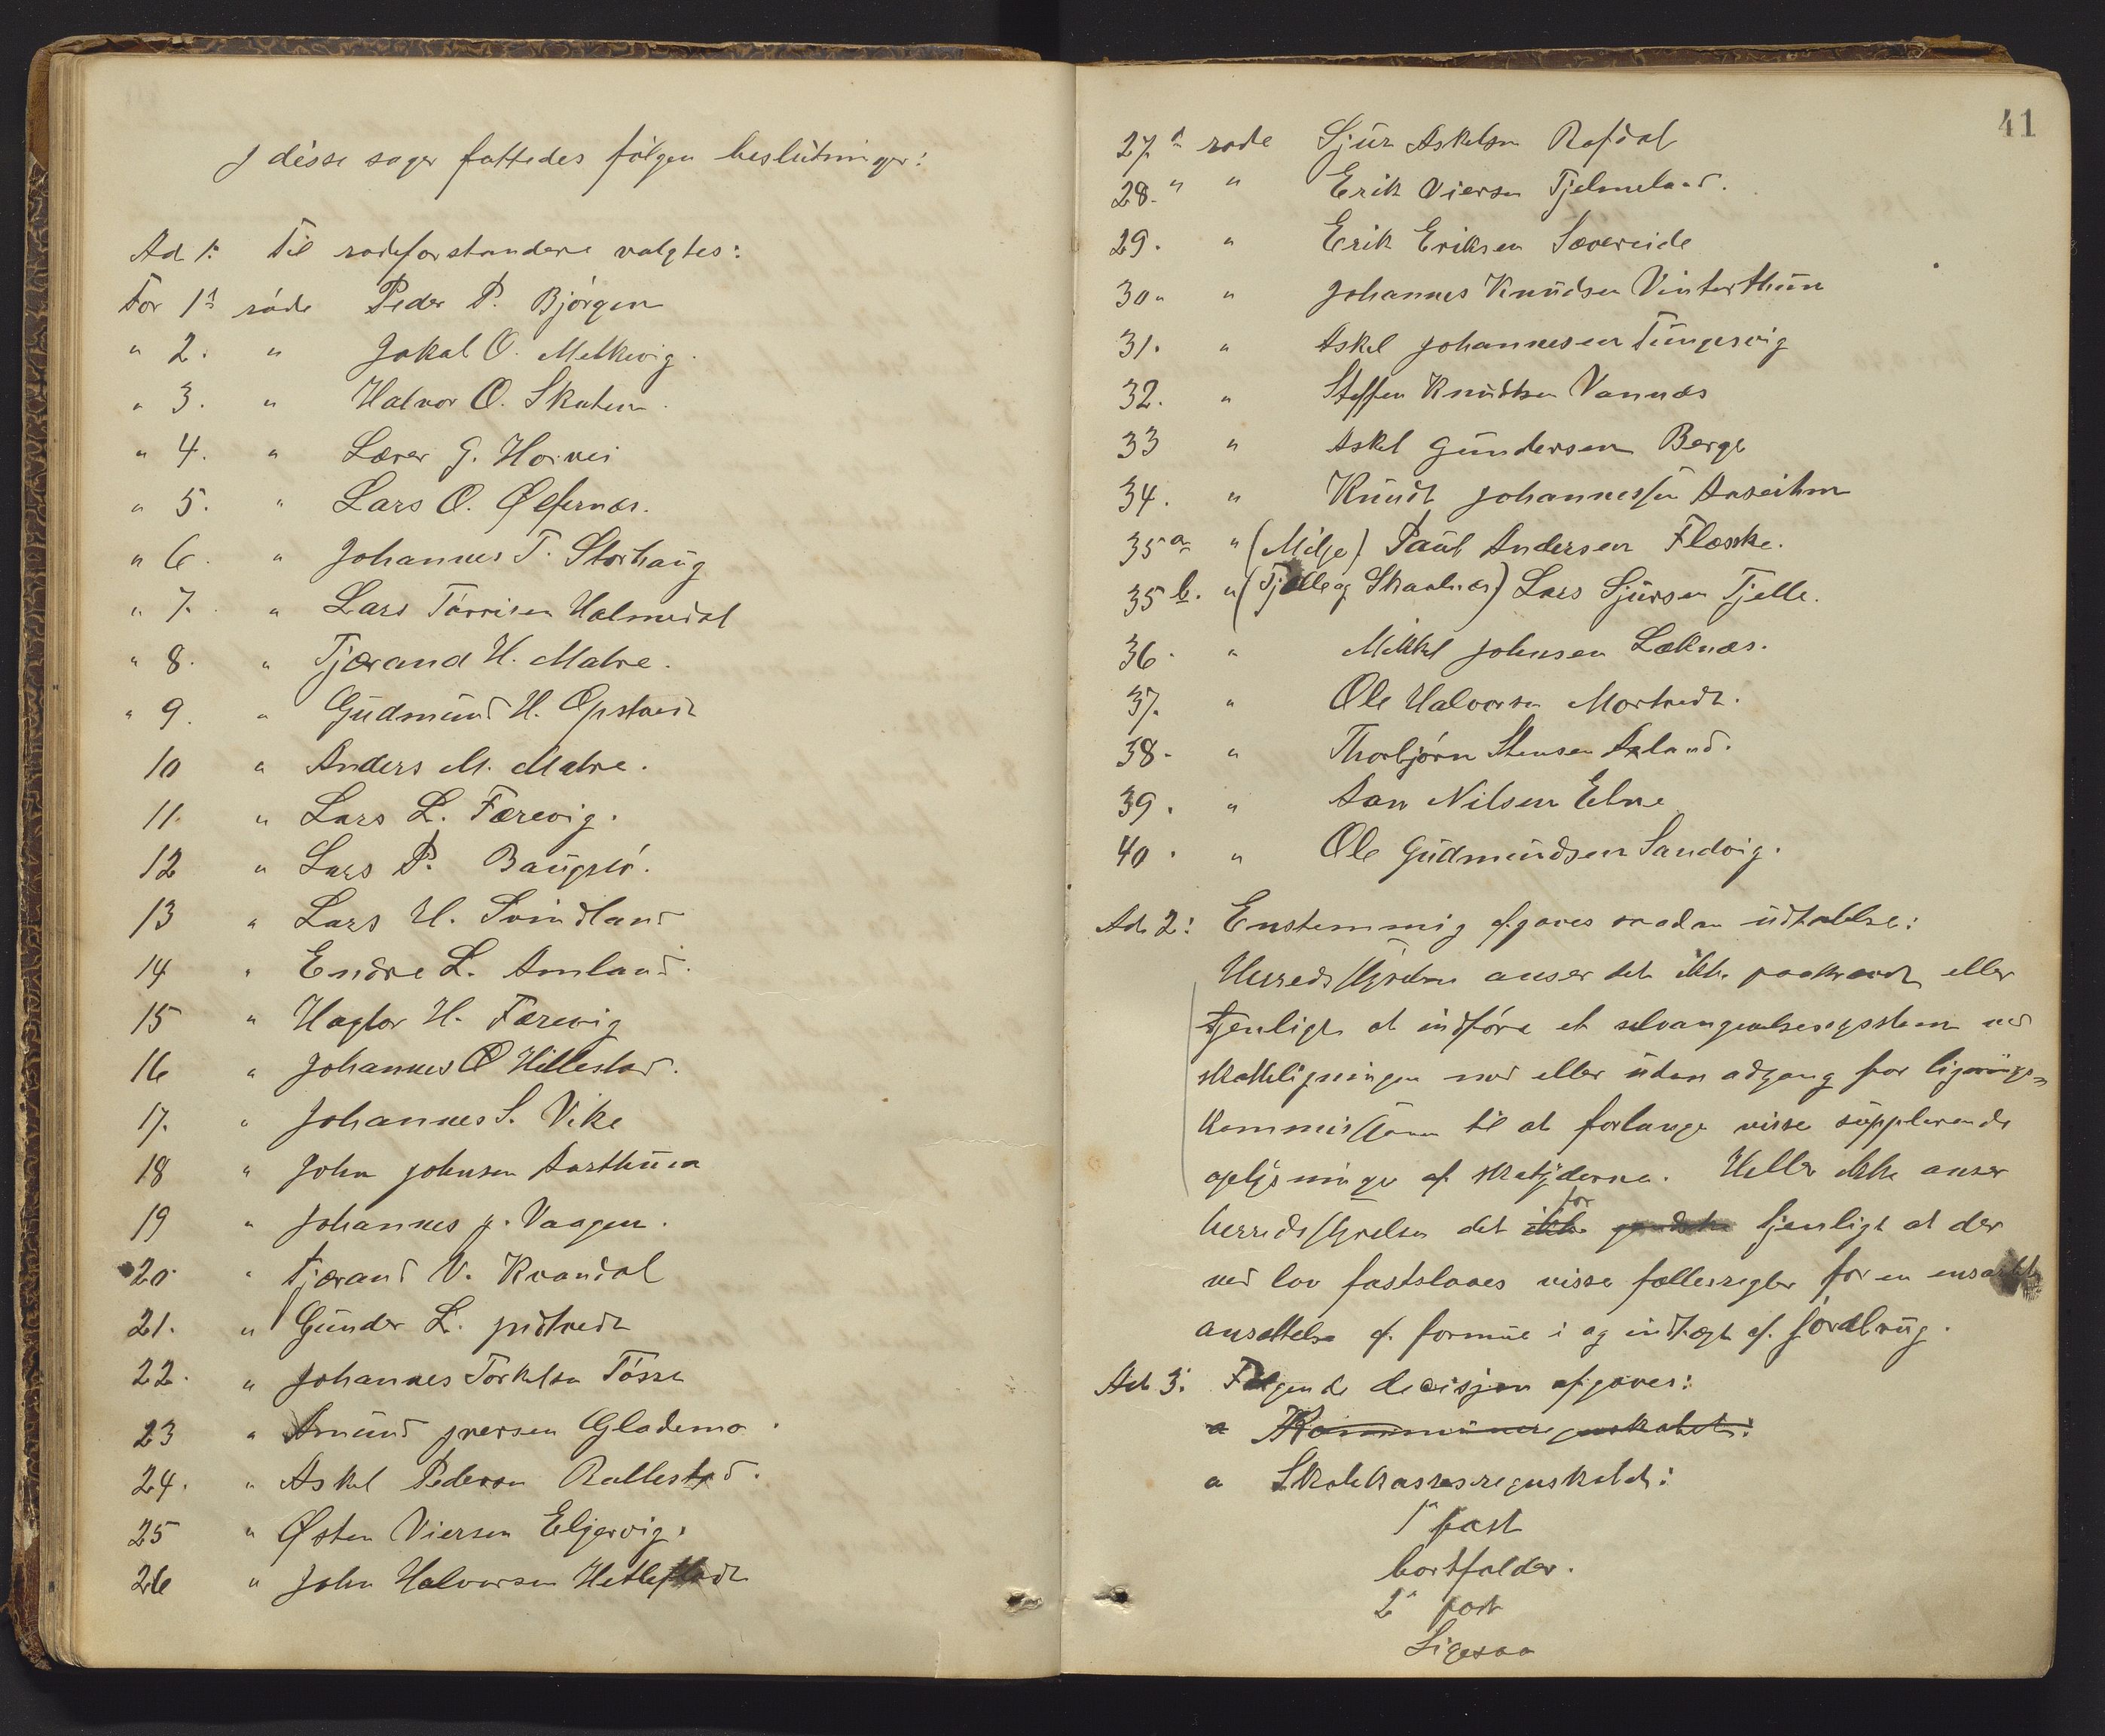 I disse sager fattedes følgen beslutninger:
Ad 1: Til rodeforstandere valgtes:
For 1ste rode Peder P. Bjørgen
" 2. " Jakob O. Melkevig.
" 3. " Halvor O. Skateun.
" 4. " Lærer G. Hornei
" 5. " Lars O. Ølfernæs.
" 6. " Johannes T. Storhaug
" 7. " Lars Tørrisen Halmedal
" 8. " Tjærand H. Matre.
" 9. " Gudmund H. Opstvedt
10 " Anders M. Matre.
11. " Lars L. Færevig.
12 " Lars P. Baugslø.
13 " Lars H. Svindland
14 " Endre L. Amland.
15 " Hagtor H. Færevig
16 " Johannes O Hillestad.
17. " Johannes S. Vike
18 " John Johnsen Aarthun
19 " Johannes J. Vaagen.
20. " Tjærand V. Kvandal
21. " Gunder L. Indtvedt
22. " Johannes Torkelsen Tøsse
23 " Amund Iversen Glademo.
24. " Askel Pedersen Rullestad.
25 " Østen Viersen Eljervig.
26 " John Halvorsen Hetleflodt
41
27de rode Sjur Askelsen Rafdal
28. " " Erik Viersen Tjelmeland.
29. " Erik Eriksen Sævereide
30. " Johannes Knudsen Vinterthun
31. " Askel Johannesen Tungesvig
32. " Steffen Knudtsen Vannæs
33 " Askel Gundersen Berge
34. " Knudt Johannessen Austrheim
35a " (Milje) Paul Andersen Flæske.
35b. " (Tjelle og Skaalnæs) Lars Sjursen Tjelle.
36. " Mikkel Johnsen Læknæs.
37. " Ole Halvorsen Mortvedt.
38. " Thorbjørn Stensen Axland.
39. " Aan Nilsen Elne
40. " Ole Gudmundsen Sandvig.
Ad. 2: Enstemmig afgaves saadan udtalelse:
Herredsstyrelsen anser det ikke paakrævet eller
tjenligt at indføre et selvangivelsessystem ved
skatteligningen med eller uden adgang for lignings-
kommissionen til at forlange visse supplerende
oplysninger af skatyderne. Heller ikke anser
herredsstyrelsen det ikke for tjenligt at der
ved lov fastslaaes visse fællesregler for en ensartet
ansættelse af formue i og indtægt af jordbrug.
Ad 3: Følgende decisjon afgaves:
a Kommuneregnskabet:
a Skolekassesregnskabet:
1ste post
bortfalder.
2den post
Ligesaa